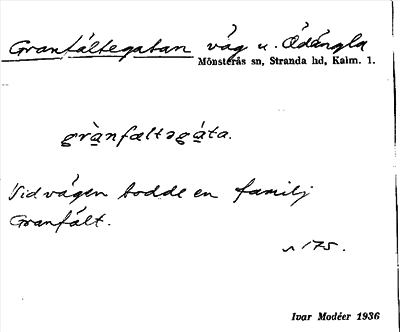 Granfältegatan väg u. Ödängla
Mönsterås sn, Stranda hd, Kalm. l.
grànfæltəgáta.
Vid vägen bodde en familj
Granfält.
n 175.
Ivar Modéer 1936